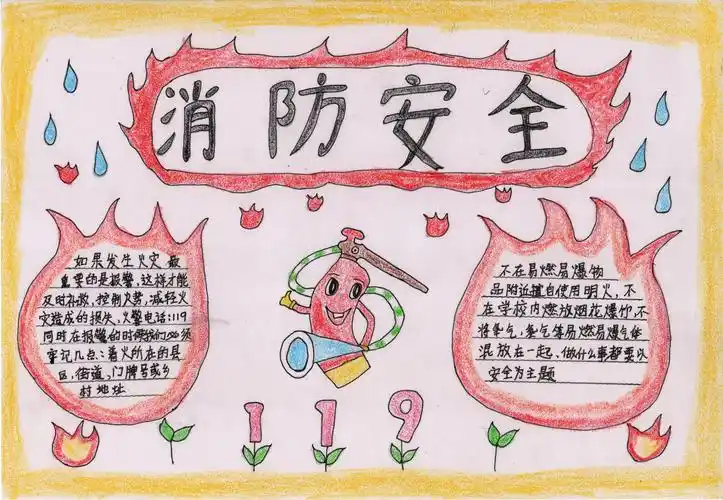 消防安全
如果发生火灾最
重要的是报警,这样才能
及时补救,控制火势,减轻火
灾造成的损失,火警电话:119
同时在报警的时候我们必须
牢记几点:着火所在的县
区,街道,门牌号或乡
村地址
不在易燃易爆物
品附近擅自使用明火,不
在学校内燃放烟花爆竹,不
将氧气,氢气体易燃易爆气体
混放在一起,做什么事都要以
安全为主题
119